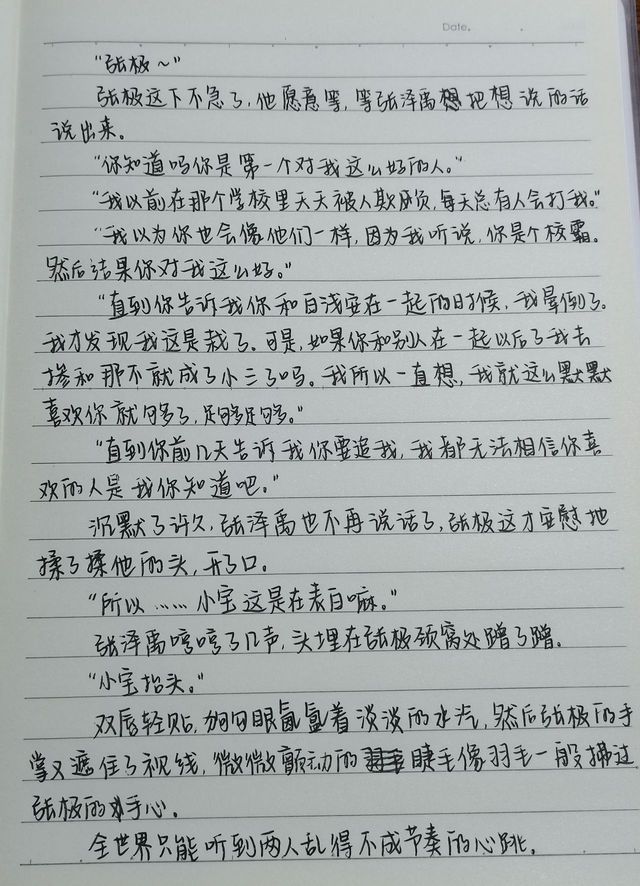 Date.
"张极～"
张极这下不急了,他愿意等,等张泽禹想把想说的话
说出来。
"你知道吗你是第一个对我这么好的人。"
"我以前在那个学校里天天被人欺负,每天总有人会打我。"
"我以为你也会像他们一样,因为我听说,你是个校霸。
然后结果你对我这么好。"
"直到你告诉我你和白浅安在一起的时候,我晕倒了。
我才发现我这是栽了。可是,如果你和别人在一起以后了我去
掺和那不就成了小三了吗。我所以一直想,我就这么默默
喜欢你就够了,足够足够。"
"直到你前几天告诉我你要追我,我都无法相信你喜
欢的人是我你知道吧。"
沉默了许久,张泽禹也不再说话了,张极这才安慰地
揉了揉他的头,开了口。
"所以……小宝这是在表白嘛。"
张泽禹哼哼了几声,头埋在张极颈窝处蹭了蹭。
"小宝抬头。"
双唇轻贴,狗狗眼氤氲着淡淡的水汽,然后张极的手
掌又遮住了视线,微微颤动的睫毛像羽毛一般扫过
张极的手心。
全世界只能听到两人乱得不成节奏的心跳.